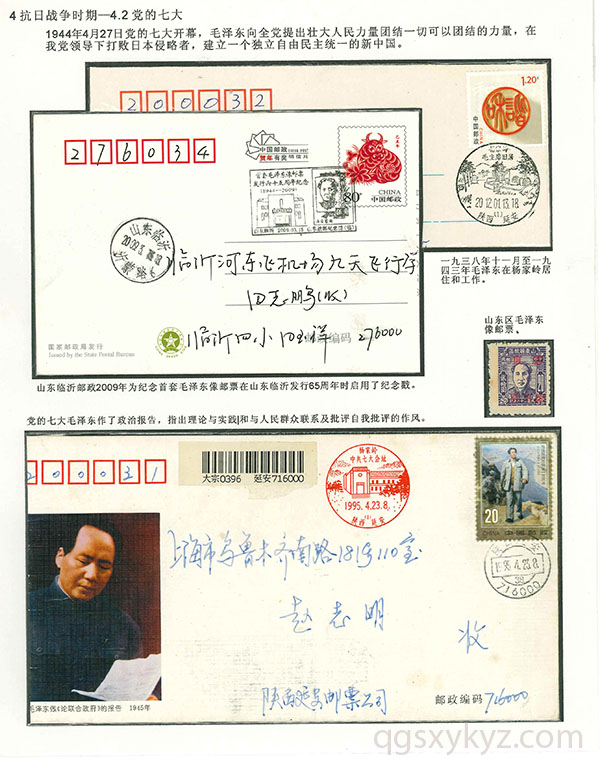 4 抗日战争时期—4.2 党的七大
1944年4月27日党的七大开幕，毛泽东向全党提出壮大人民力量团结一切可以团结的力量，在
我党领导下打败日本侵略者，建立一个独立自由民主统一的新中国。
200032
1.20元
中国邮政
毛主席旧居
2012.01.13.18
陕西 延安
276034
中国邮政
CHINA POST
贺年有奖
明信片
首套毛泽东像邮票
发行六十五周年纪念
(1944--2009)
80分
CHINA
中国邮政
山东临沂
临沂河东飞机场九天飞行学
田志鹏(收)
临沂四小 田
邮政编码 276000
国家邮政局发行
Issued by the State Postal Bureau
一九三八年十一月至一九
四三年毛泽东在杨家岭居
住和工作。
山东区毛泽东
像邮票。
山东临沂邮政2009年为纪念首套毛泽东像邮票在山东临沂发行65周年时启用了纪念戳。
党的七大毛泽东作了政治报告，指出理论与实践和与人民群众联系及批评自我批评的作风。
200031
大宗0396 延安716000
杨家岭
中共七大会址
1995.4.23.8
陕西 延安
20
CHINA
1995.4.23.8
716000
上海市乌鲁木齐南路181号110室
赵志明
收
陕西延安邮票公司
邮政编码 716000
毛泽东做《论联合政府》的报告 1945年
qgsxykyz.com